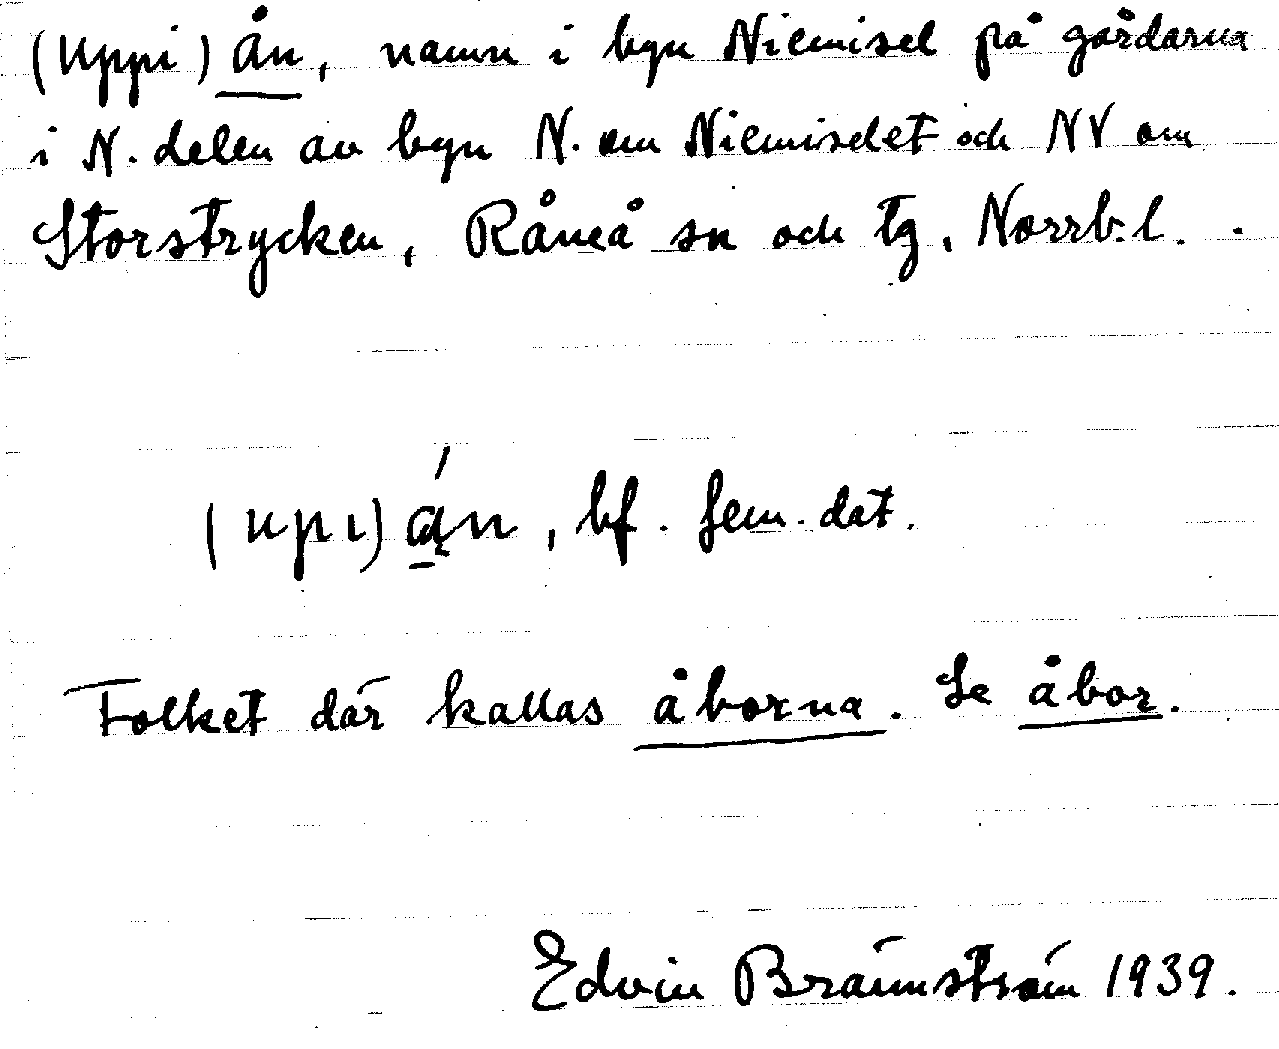 (Uppi) ån, namn i byn Niemisel på gårdarna
i N. delen av byn N. om Niemiselet och NV om
Storstrycken, Råneå sn och tg, Norrb. l.
(upı) ą́n, bf. fem. dat.
Folket där kallas åborna. Se åbor.
Edvin Brännström 1939.